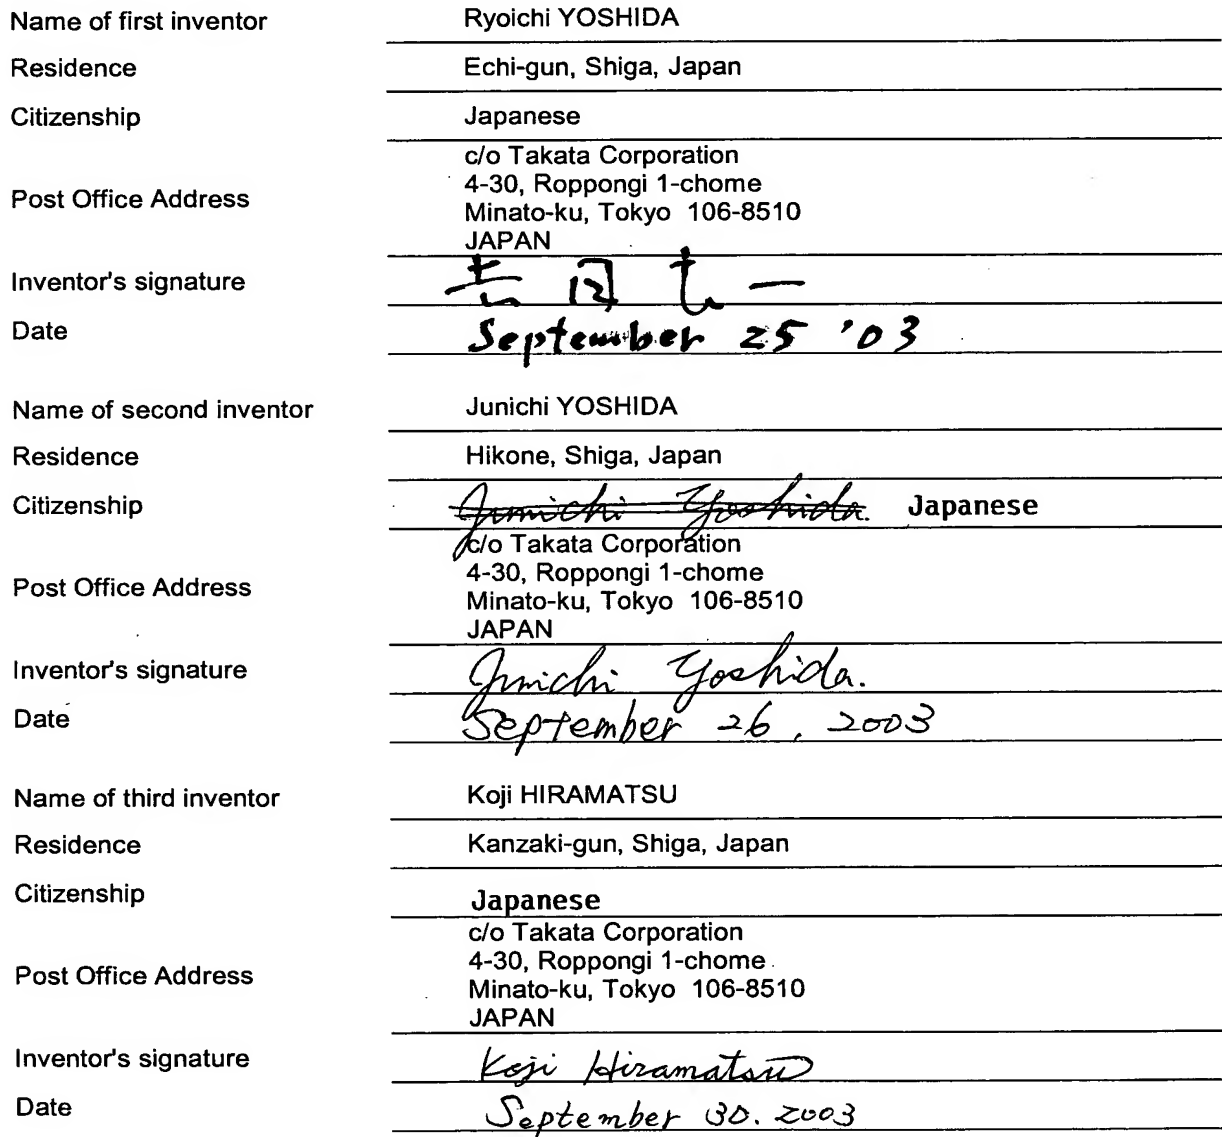 Name of first inventor Ryoichi YOSHIDA
Residence Echi-gun, Shiga, Japan
Citizenship Japanese
Post Office Address c/o Takata Corporation
4-30, Roppongi 1-chome
Minato-ku, Tokyo 106-8510
JAPAN
Inventor's signature 一
Date September 25 '03
Name of second inventor Junichi YOSHIDA
Residence Hikone, Shiga, Japan
Citizenship Junichi Yoshida. Japanese
Post Office Address c/o Takata Corporation
4-30, Roppongi 1-chome
Minato-ku, Tokyo 106-8510
JAPAN
Inventor's signature Junichi Yoshida.
Date September 26, 2003
Name of third inventor Koji HIRAMATSU
Residence Kanzaki-gun, Shiga, Japan
Citizenship Japanese
Post Office Address c/o Takata Corporation
4-30, Roppongi 1-chome
Minato-ku, Tokyo 106-8510
JAPAN
Inventor's signature Koji Hiramatsu
Date September 30. 2003